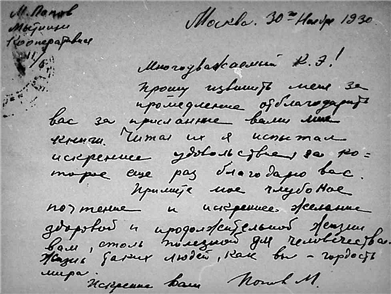 М. Попов
Мытищи
Кооперативная
11/6
Москва. 30го Ноября 1930
Многоуважаемый К.Э.!
Прошу извинить меня за
промедление отблагодарить
вас за присланные вами мне
книги. Читая их я испытал
искреннее удовольствие за ко-
торое еще раз благодарю вас.
Примите мое глубокое
почтение и искреннее желание
здоровой и продолжительной жизни
вам, столь полезной для человечества.
Жизнь таких людей, как вы - гордость
мира.
Искренне ваш Попов М.